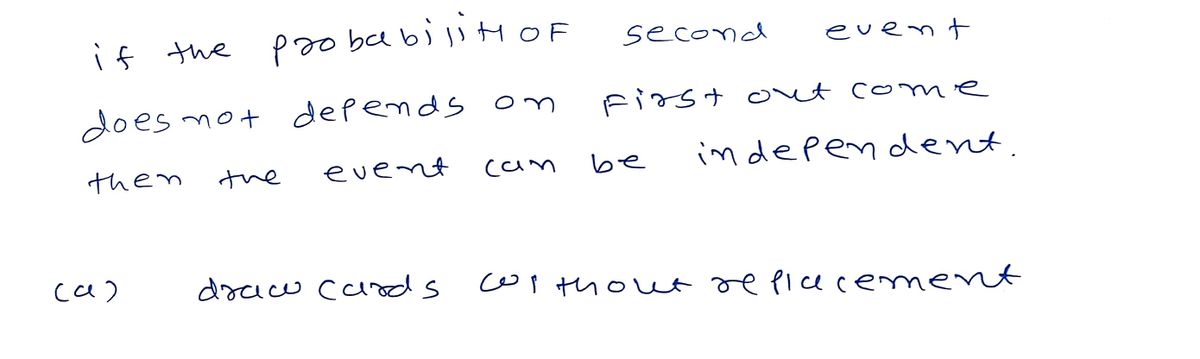 if the probability of second event
does not depends on first out come
then the event can be independent.
(a) draw cards without replacement